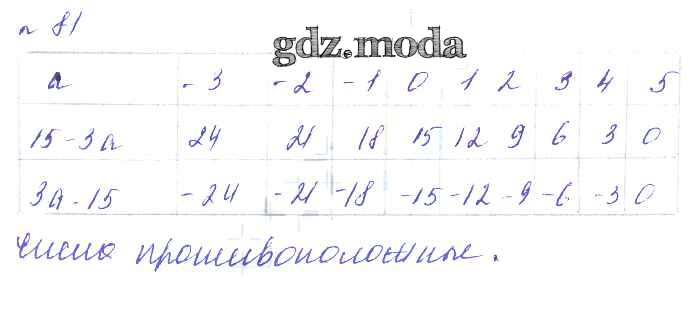 № 81
gdz.moda
a -3 -2 -1 0 1 2 3 4 5
15-3a 24 21 18 15 12 9 6 3 0
3a-15 -24 -21 -18 -15 -12 -9 -6 -3 0
числа противоположные.